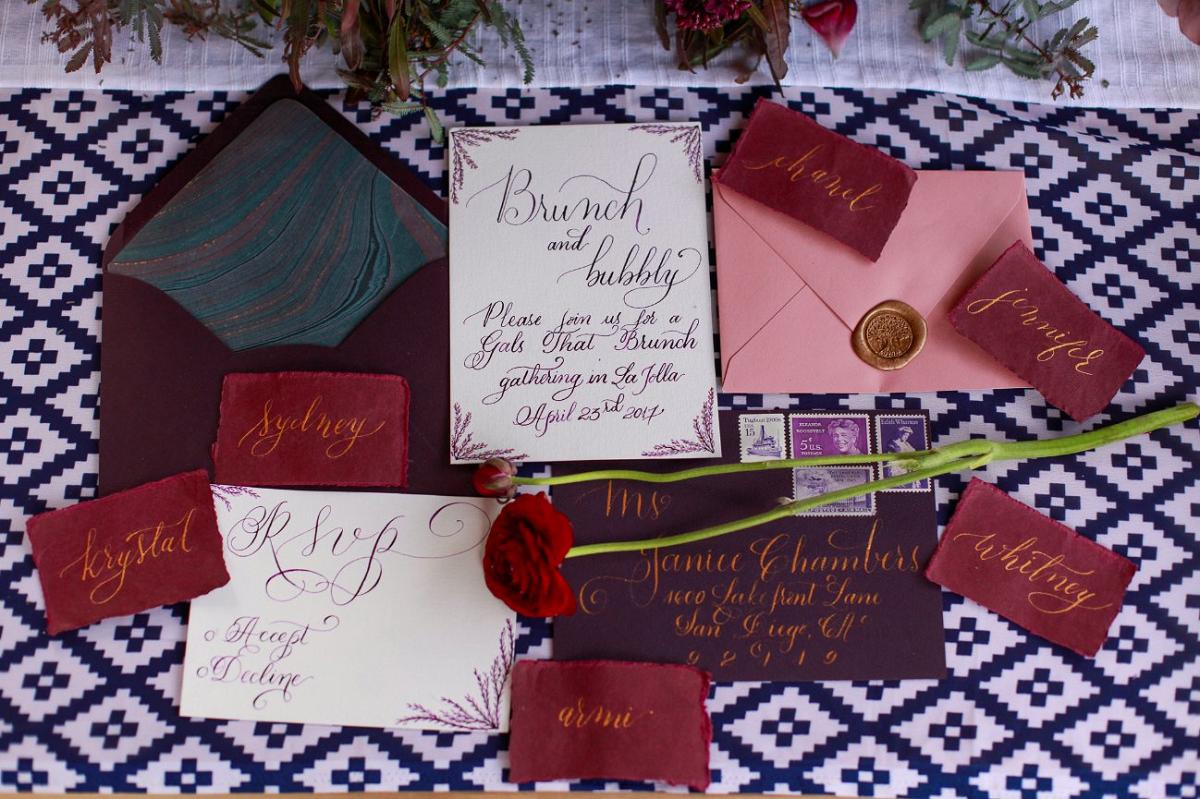 Brunch
and
bubbly
Please join us for a
Gals That Brunch
gathering in La Jolla
April 23rd 2017
chanel
jennifer
sydney
krystal
RSVP
Accept
Decline
Tugboat 1900s
USA
15
ELEANOR
ROOSEVELT
5¢ U.S.
POSTAGE
Edith Wharton
U.S. POSTAGE
Ms
Janice Chambers
1600 Lakefront Lane
San Diego, CA
92119
whitney
armi